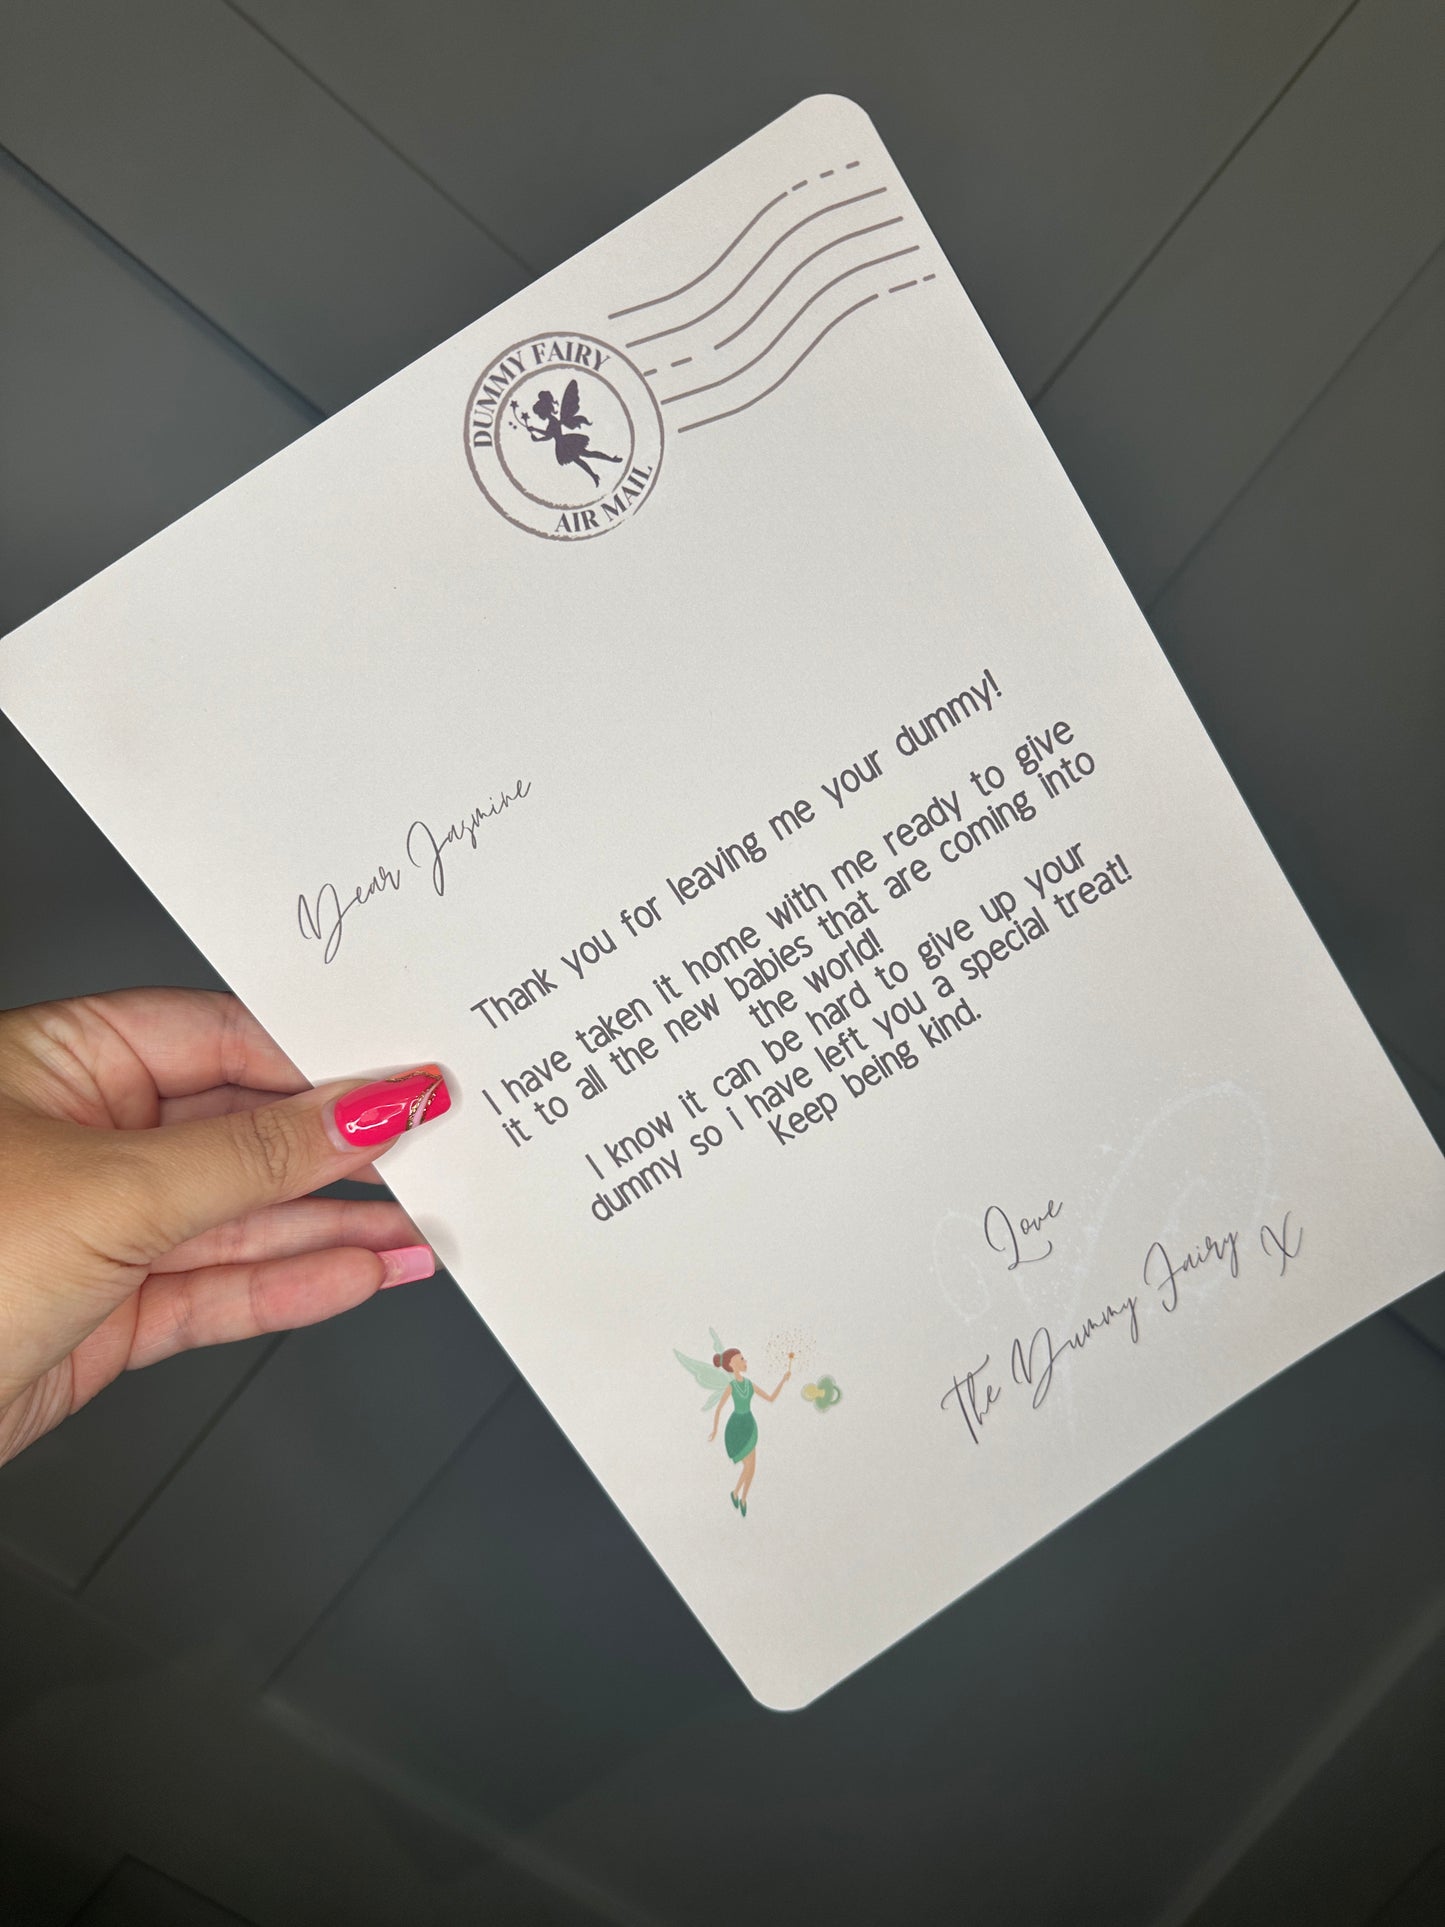 DUMMY FAIRY
AIR MAIL
Dear Jasmine
Thank you for leaving me your dummy!
I have taken it home with me ready to give
it to all the new babies that are coming into
the world!
I know it can be hard to give up your
dummy so I have left you a special treat!
Keep being kind.
Love
The Dummy Fairy X